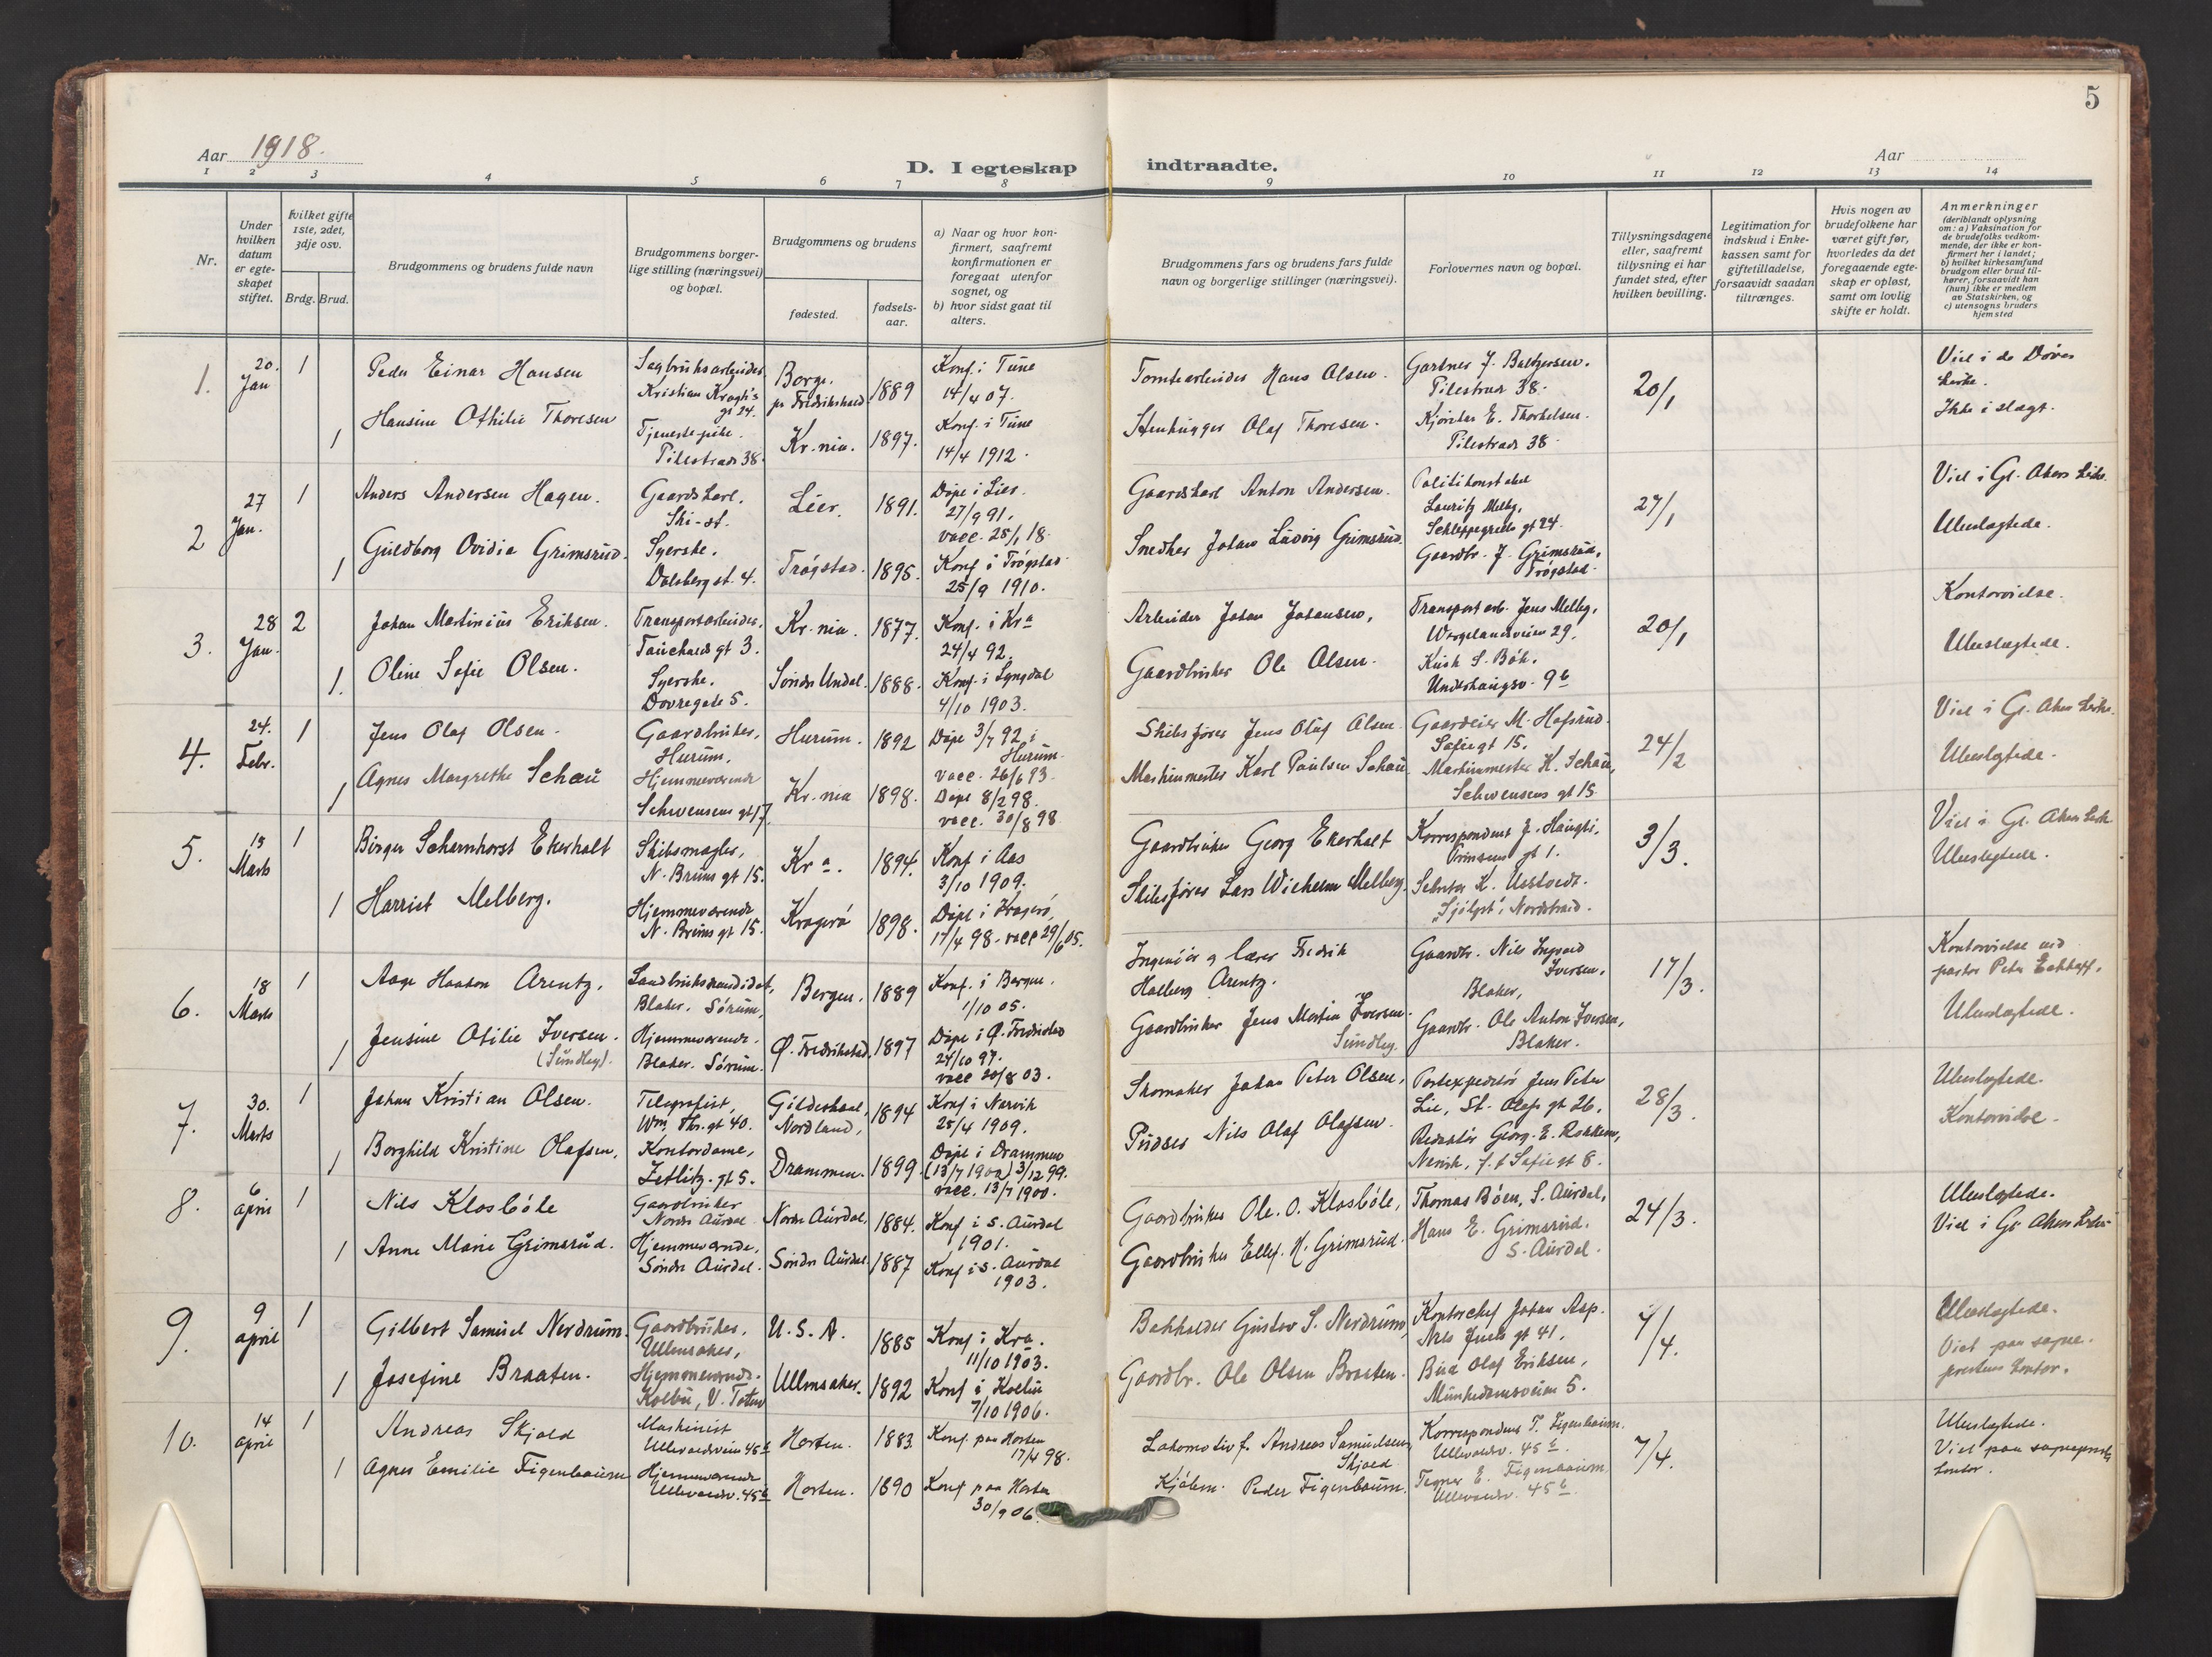 5
Aar 1918.
D. I egteskap indtraadte.
Aar
1 2 3 4 5 6 7 8 9 10 11 12 13 14
Nr.
Under hvilken datum er egteskapet stiftet.
Hvilket gifte 1ste, 2det, 3dje osv.
Brdg. Brud.
Brudgommens og brudens fulde navn
Brudgommens borgerlige stilling (næringsvei) og bopæl.
Brudgommens og brudens
fødested.
fødselsaar.
a) Naar og hvor konfirmert, saafremt konfirmationen er foregaat utenfor sognet, og
b) hvor sidst gaat til alters.
Brudgommens fars og brudens fars fulde navn og borgerlige stillinger (næringsvei).
Forlovernes navn og bopæl.
Tillysningsdagene eller, saafremt tillysning ei har fundet sted, efter hvilken bevilling.
Legitimation for indskud i Enkekassen samt for giftetilladelse, forsaavidt saadan tiltrænges.
Hvis nogen av brudefolkene har været gift før, hvorledes da det foregaaende egteskap er opløst, samt om lovlig skifte er holdt.
Anmerkninger
(deriblandt oplysning om: a) Vaksination for de brudefolks vedkommende, der ikke er konfirmert her i landet; b) hvilket kirkesamfund brudgom eller brud tilhører, forsaavidt han (hun) ikke er medlem av Statskirken, og c) utensogns bruders hjemsted
1. 20. Jan 1 Peder Einar Hansen Sagbruksarbeider, Kristian Kroghs gt 24. Borge, pr Fredrikshald 1889 Konf. i Tune 14/4 07. Tomtearbeider Hans Olsen. Gartner J. Baltzersen. Pilestræd 38. 20/1 Viet i de Døves kirke.
1 Hansine Othilie Thoresen Tjenestepike. Pilestræd 38. Kr.nia. 1897. Konf. i Tune 14/4 1912. Stenhugger Olaf Thoresen. E. Thorkelsen. Pilestræd 38. Ikke i slægt.
2 27 Jan. 1 Anders Andersen Hagen. Gaardskarl, Ski-st. Lier. 1891. Døpt i Lier. 27/9 91. vacc. 25/1 18. Gaardskarl Anton Andersen. Politikonstabel Lauritz Melby, Schleppegrells gt 24. 27/1 Viet i Gl. Akers kirke.
1 Guldborg Ovidia Grimsrud. Syerske. Dalsbergst. 4. Trøgstad. 1895. Konf i Trøgstad 25/9 1910. Snedker Johan Ludvig Grimsrud. Gaardbr. J. Grimsrud, Trøgstad. Ubeslægtede.
3. 28 Jan. 2 Johan Martinius Eriksen. Transportarbeider, Tauchaus gt 3. Kr.nia. 1877. Konf. i Kra 24/4 92. Arbeider Johan Johansen, Transportarb. Jens Melby, Wergelandsveien 29. 20/1 Kontorvielse.
1. Oline Sofie Olsen. Syerske. Dovregate 5. Søndre Undal. 1888. Konf. i Lyngdal 4/10 1903. Gaardbruker Ole Olsen. Kusk S. Bøh. Underhaugsv. 9b Ubeslægtede.
4. 24. Febr. 1 Jens Olaf Olsen. Gaardbruker, Hurum. Hurum. 1892 Døpt 3/7 92 i Hurum. vacc. 26/6 93. Skibsfører Jens Olaf Olsen Gaardeier M. Hofsrud. Sofiegt 15. 24/2 Viet i Gl. Aker kirke.
1 Agnes Margrethe Schau Hjemmeværende Schwensens gt 17. Kr.nia 1898. Døpt 8/2 98. vacc. 30/8 98 Maskinmester Karl Paulsen Schau. Maskinmester K. Schau, Schwensens gt 15 Ubeslægtede.
5. 15 Marts 1 Birger Scharnhorst Ekerholt Skibsmægler, N. Bruns gt 15. Kra. 1894. Konf i Aas 3/10 1909. Gaardbruker Georg Ekerholt Korrespondent J. Haugli, Prinsens gt 1. 3/3. Viet i Gl. Akers kirk
1 Harriet Melberg. Hjemmeværende N. Bruns gt 15. Kragerø 1898. Døpt i Kragerø, 17/4 98. vacc 29/6 05. Skibsfører Lars Wilhelm Melberg. K. Nordstrand. Ubeslegtede.
6. 18 Marts 1 Aage Haakon Arentz. Landbrukskandidat, Blaker. Sørum, Bergen. 1889 Konf. i Bergen. 1/10 05. Ingeniør og lærer Fredrik Holberg Arentz. Gaardbr. Nils Ingvald Iversen, Blaker, 17/3. Kontorvielse ved pastor Peter
1 Jensine Otilie Iversen. (Sundby). Hjemmeværende. Blaker. Sørum. Ø. Fredrikstad 1897 Døpt i Ø. Fredrikstad 24/10 97. vacc 20/8 03. Gaardbruker Jens Martin Iversen Sundby. Gaardbr. Ole Anton Iversen, Blaker. Ubeslægtede.
7. 30. Marts 1 Johan Kristian Olsen. Telegrafist, Wm. Thr. gt 40. Gildeskaal, Nordland, 1894 Konf i Narvik 25/4 1909. Skomaker Johan Peter Olsen, Postexpeditør Jens Peter Lie, St. Olafs gt 26. 28/3. Ubeslægtede.
1 Borghild Kristine Olafsen, Kontordame, Zetlitz. gt 5. Drammen. 1899. Døpt i Drammen (13/7 1900) 3/12 99. vacc. 13/7 1900. Pudser Nils Olaf Olafsen. Redaktør Georg. E. Narvik, f.t Sofiegt 8. Kontorvielse.
8. 6 april 1 Nils Klosbøle Gaardbruker Nordre Aurdal Nordre Aurdal, 1884. Konf i S. Aurdal 1901. Gaardbruker Ole. O. Klosbøle, Thomas Bøen, S. Aurdal, 24/3. Ubeslægtede.
1 Anne Marie Grimsrud. Hjemmeværnde, Søndre Aurdal. Søndre Aurdal. 1887 Konf i S. Aurdal 1903. Gaardbruker Ellef. H. Grimsrud. Hans E. Grimsrud. S. Aurdal. Viet i Gl. Akers kirke
9. 9 april 1 Gilbert Samuel Nerdrum. Gaardbruker, Ullensaker, U. S. A. 1885 Konf i Kra. 11/10 1903. Bokholder Gustav S. Nerdrum, Kontorchef Johan Asp. Nils Juels gt 41. 7/4. Ubeslægtede.
1 Josefine Braaten. Hjemmeværende. Kolbu, V. Toten Ullensaker. 1892 Konf i Kolbu 7/10 1906. Gaardbr. Ole Olsen Braaten. Bud Olaf Eriksen, Munkedamsveien 5. Viet paa sogneprestens kontor.
10. 14 april 1 Andreas Skjold Maskinist Ullevaalsveien 45b Horten. 1883. Konf. paa Horten 17/4 98. Lokomotivf. Andreas Samuelsen Skjold Korrespondent T. Figenbaum. Ullevaalsv. 45b. 7/4. Ubeslægtede.
1 Agnes Emilie Figenbaum Hjemmeværende Ullevaalsv. 45b Horten. 1890 Konf paa Horten 30/9 06. Kjølem. Peder Figenbaum. Tegner E. Figenbaum, Ullevaalsv. 45b. Viet paa sogneprests kontor.